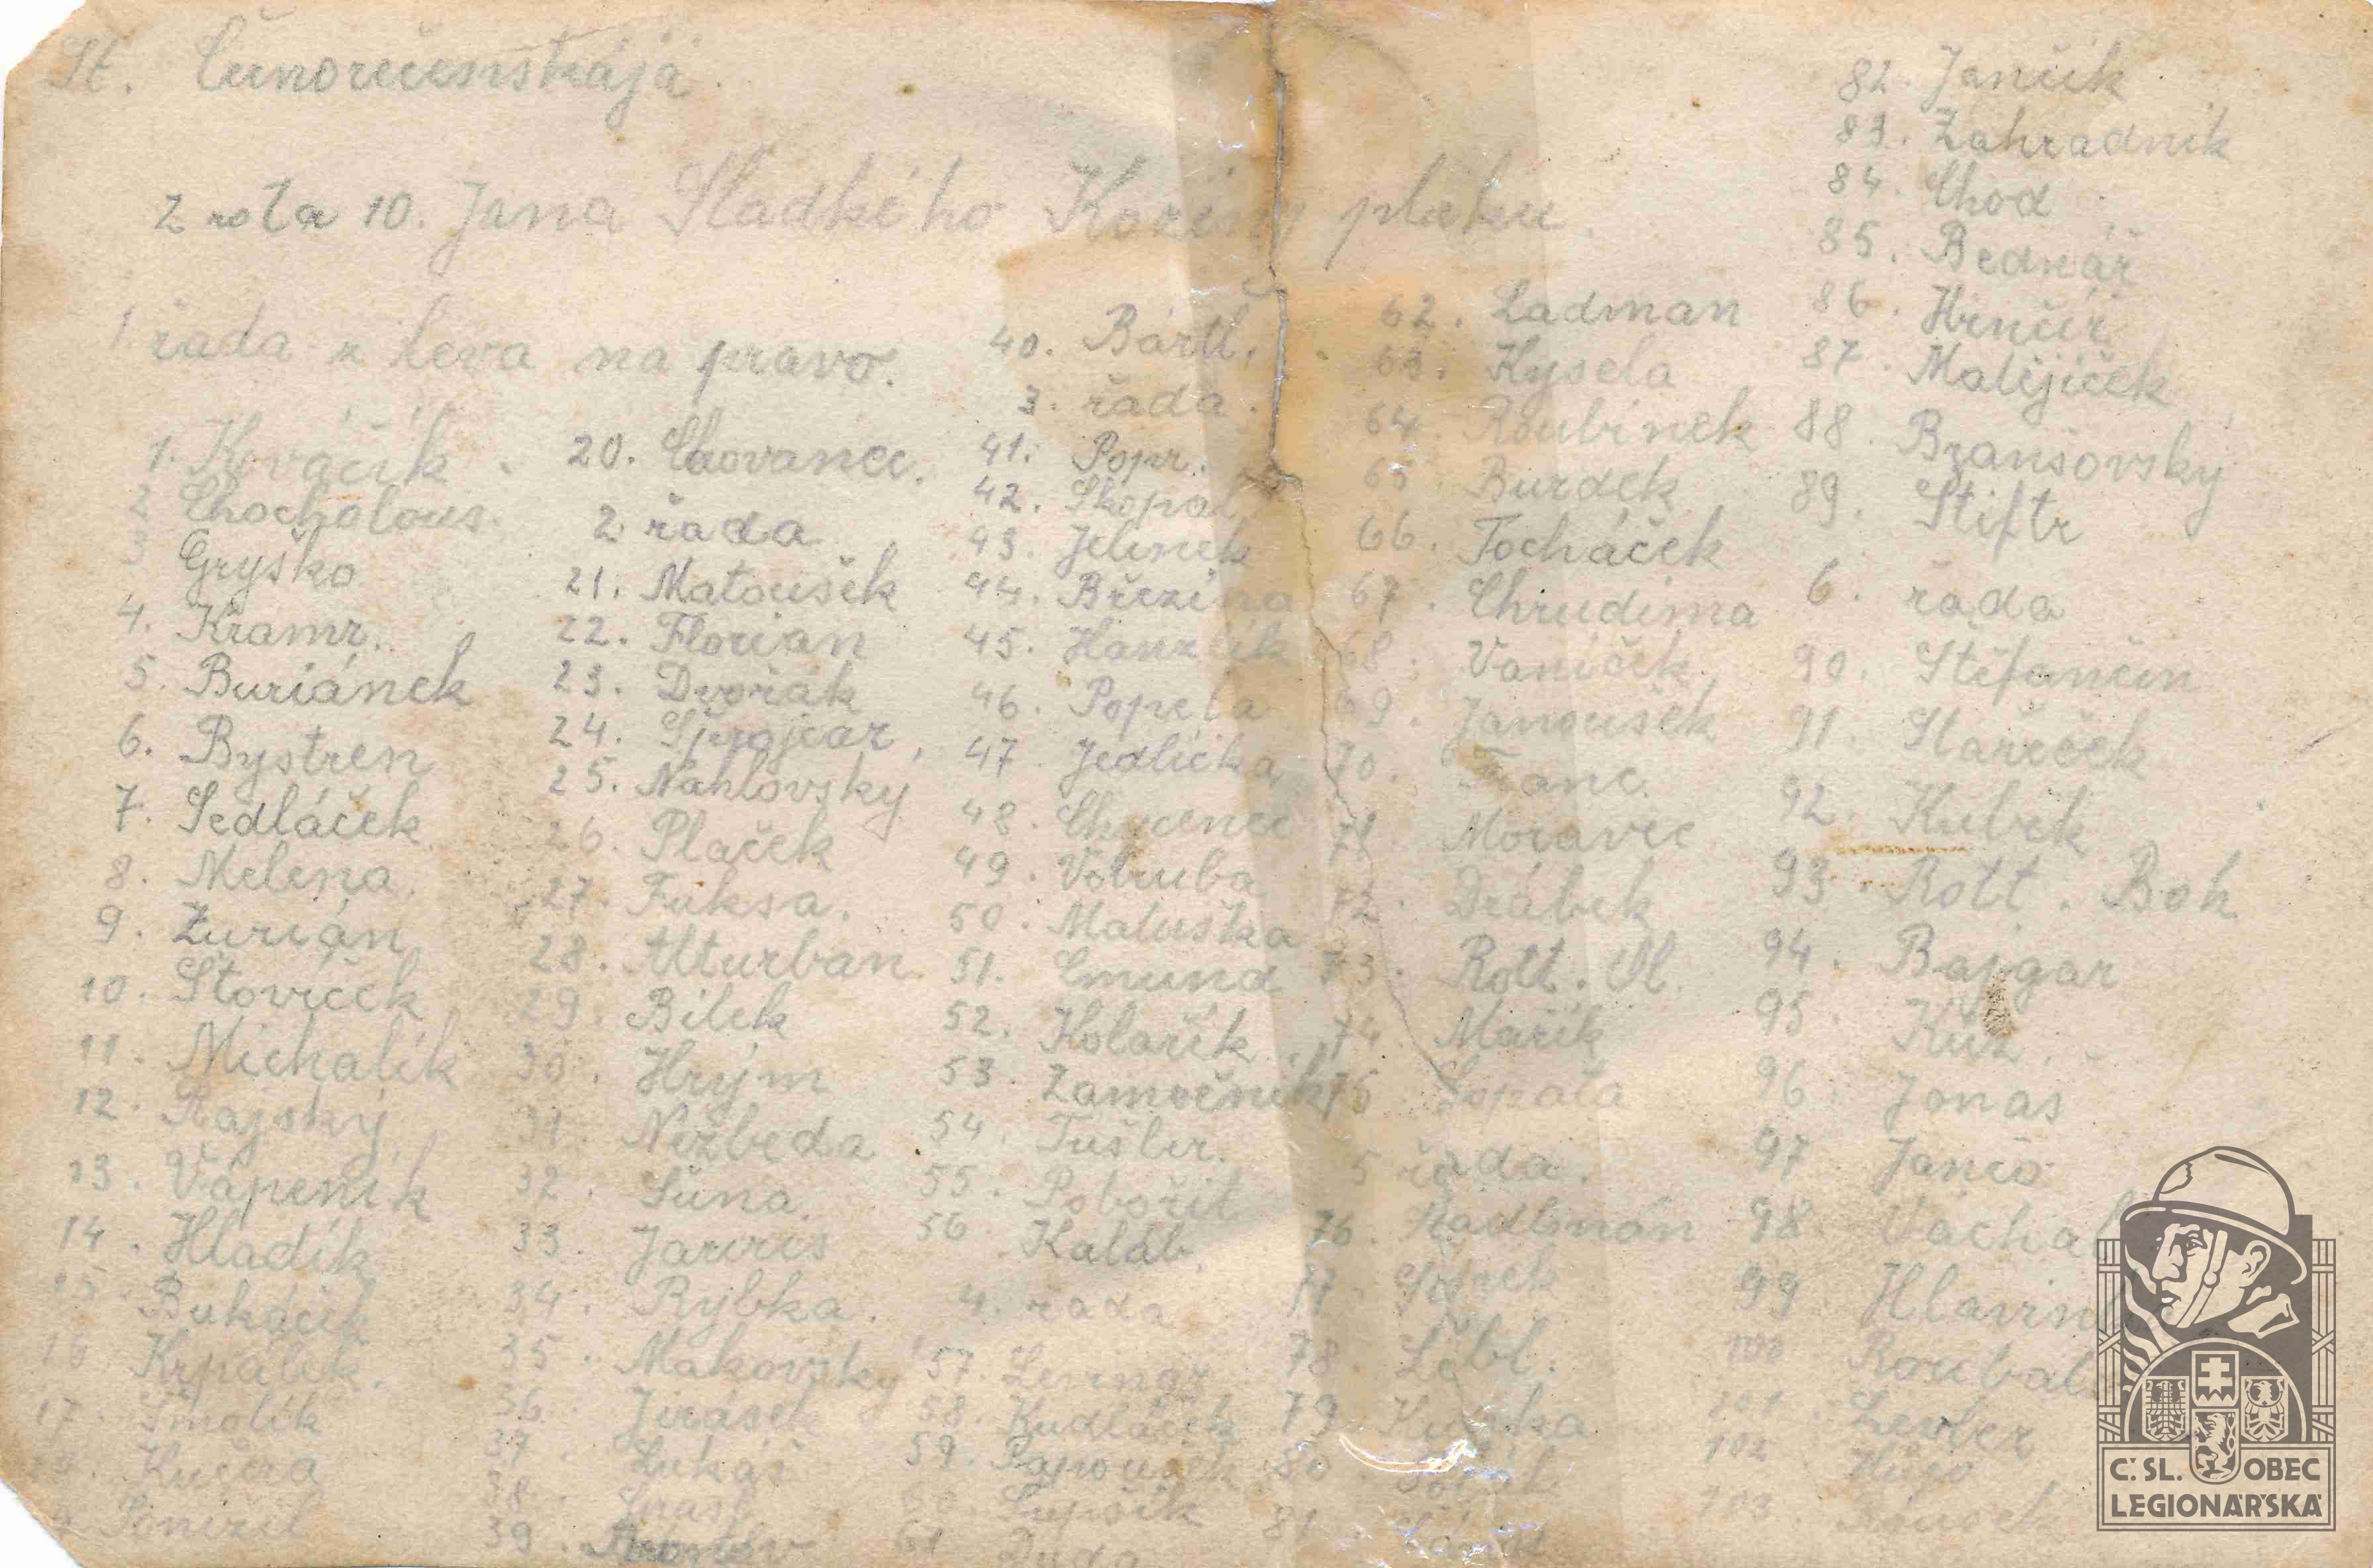 St. Čunorečenskája.
2 rota 10. Jana Sladkého Koziny pluku.
1 řada z leva na pravo.
1. Kováčik.
2 Chocholous.
3 Gryško
4. Kramr.
5. Buriánek
6. Bystřen
7. Sedláček
8. Melena.
9. Žurián
10. Šťovíček
11. Michalík
12. Rajský
13. Vápeník
14. Hladík
15. Bukáček
16 Krpálek.
17. Smolík
18. Kučera
20. Chovanec.
2 řada
21. Matoušek
22. Florian
23. Dvořák
24.
25. Nahlovský
26. Plaček
27. Fuksa.
28. Alturban
29. Bílek
30. Hrým
31. Nežbeda
32. Šůna.
33. Jarvis
34. Rybka.
35. Makovský
36. Jirásek
37. Lukáš
38.
39.
40. Bártl.
3. řada.
41. Popr.
42. Skopal
43. Jelínek
44. Březina
45. Hanzlík
46. Popela
47. Jedlička
48.
49. Vobruba
50. Matuška
51. Emund
52. Kolařík
53. Zamečník
54. Tušler.
55. Pobořil
56 Kaláb.
4. řada
57.
58. Kudláček
59. Papoušek
60.
61 Duda
62. Ladman
63. Kysela
64. Roubínek
65. Burdek
66. Tocháček
67. Chrudima
68. Vaníček.
69. Janoušek
70. Franc.
71 Moravec
72. Drábek
73. Rott. Vl.
74. Mařík
75 Lopata
5 řada.
76. Radlmán
77
78. Lébl.
79
80.
81.
82. Jančík
83. Zahradník
84. Chod
85. Bednář
86. Hrnčíř
87. Matějíček
88. Branišovský
89. Štiftr
6. řada
90. Štěfančin
91. Slaříček
92. Kubík
93. Rott. Boh.
94. Bajgar
95
96. Jonáš
97 Jančo
98. Vacha
99
100 Roubal
101
102
103
Č. SL. OBEC
LEGIONÁŘSKÁ